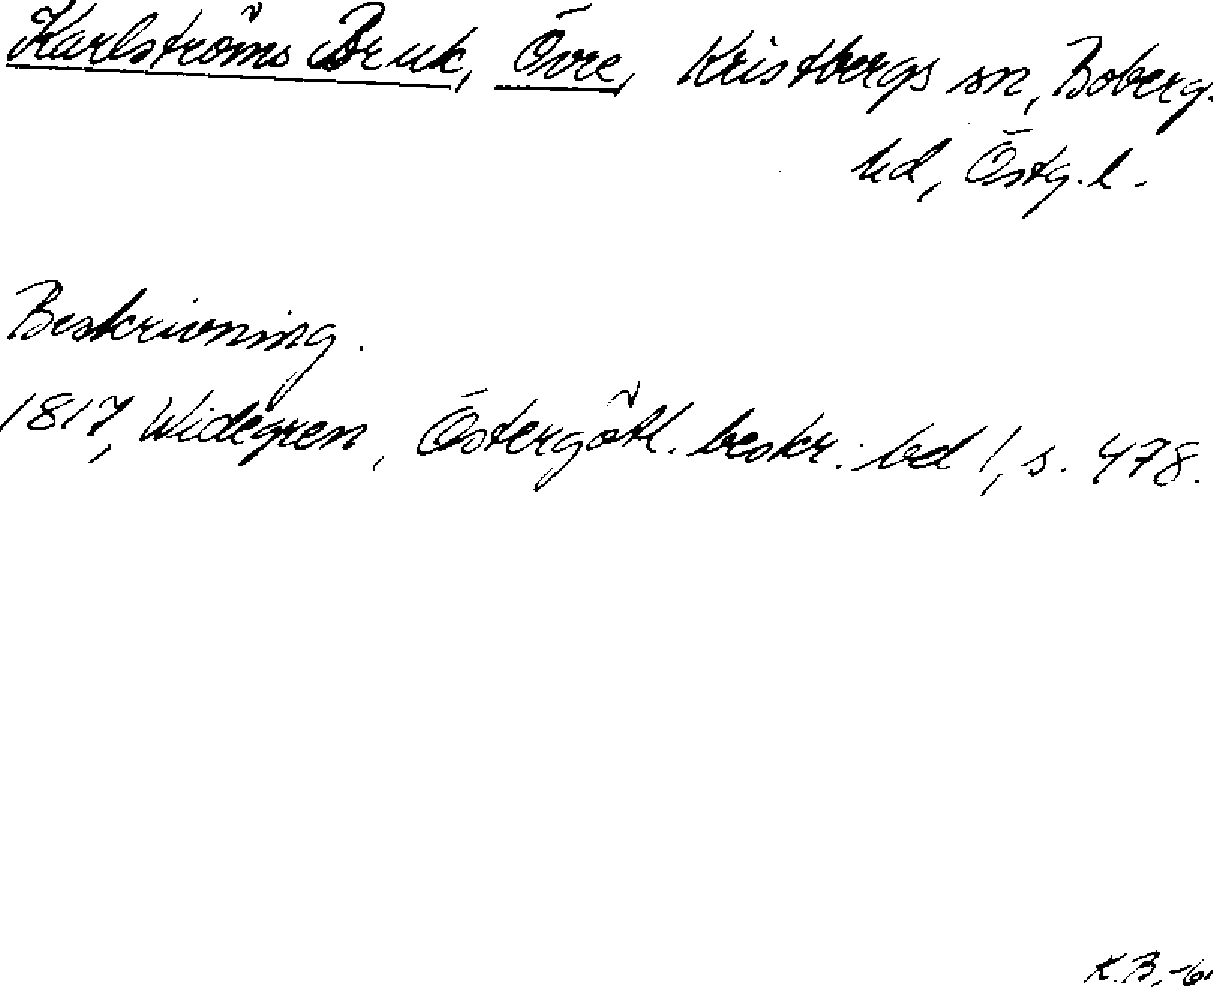 Karlströms Bruk, Övre, Kristbergs sn, Bobergs
hd, Östg. l.
Beskrivning.
1817, Widegren, Östergötl. beskr. bd 1, s. 478.
K.B, -6